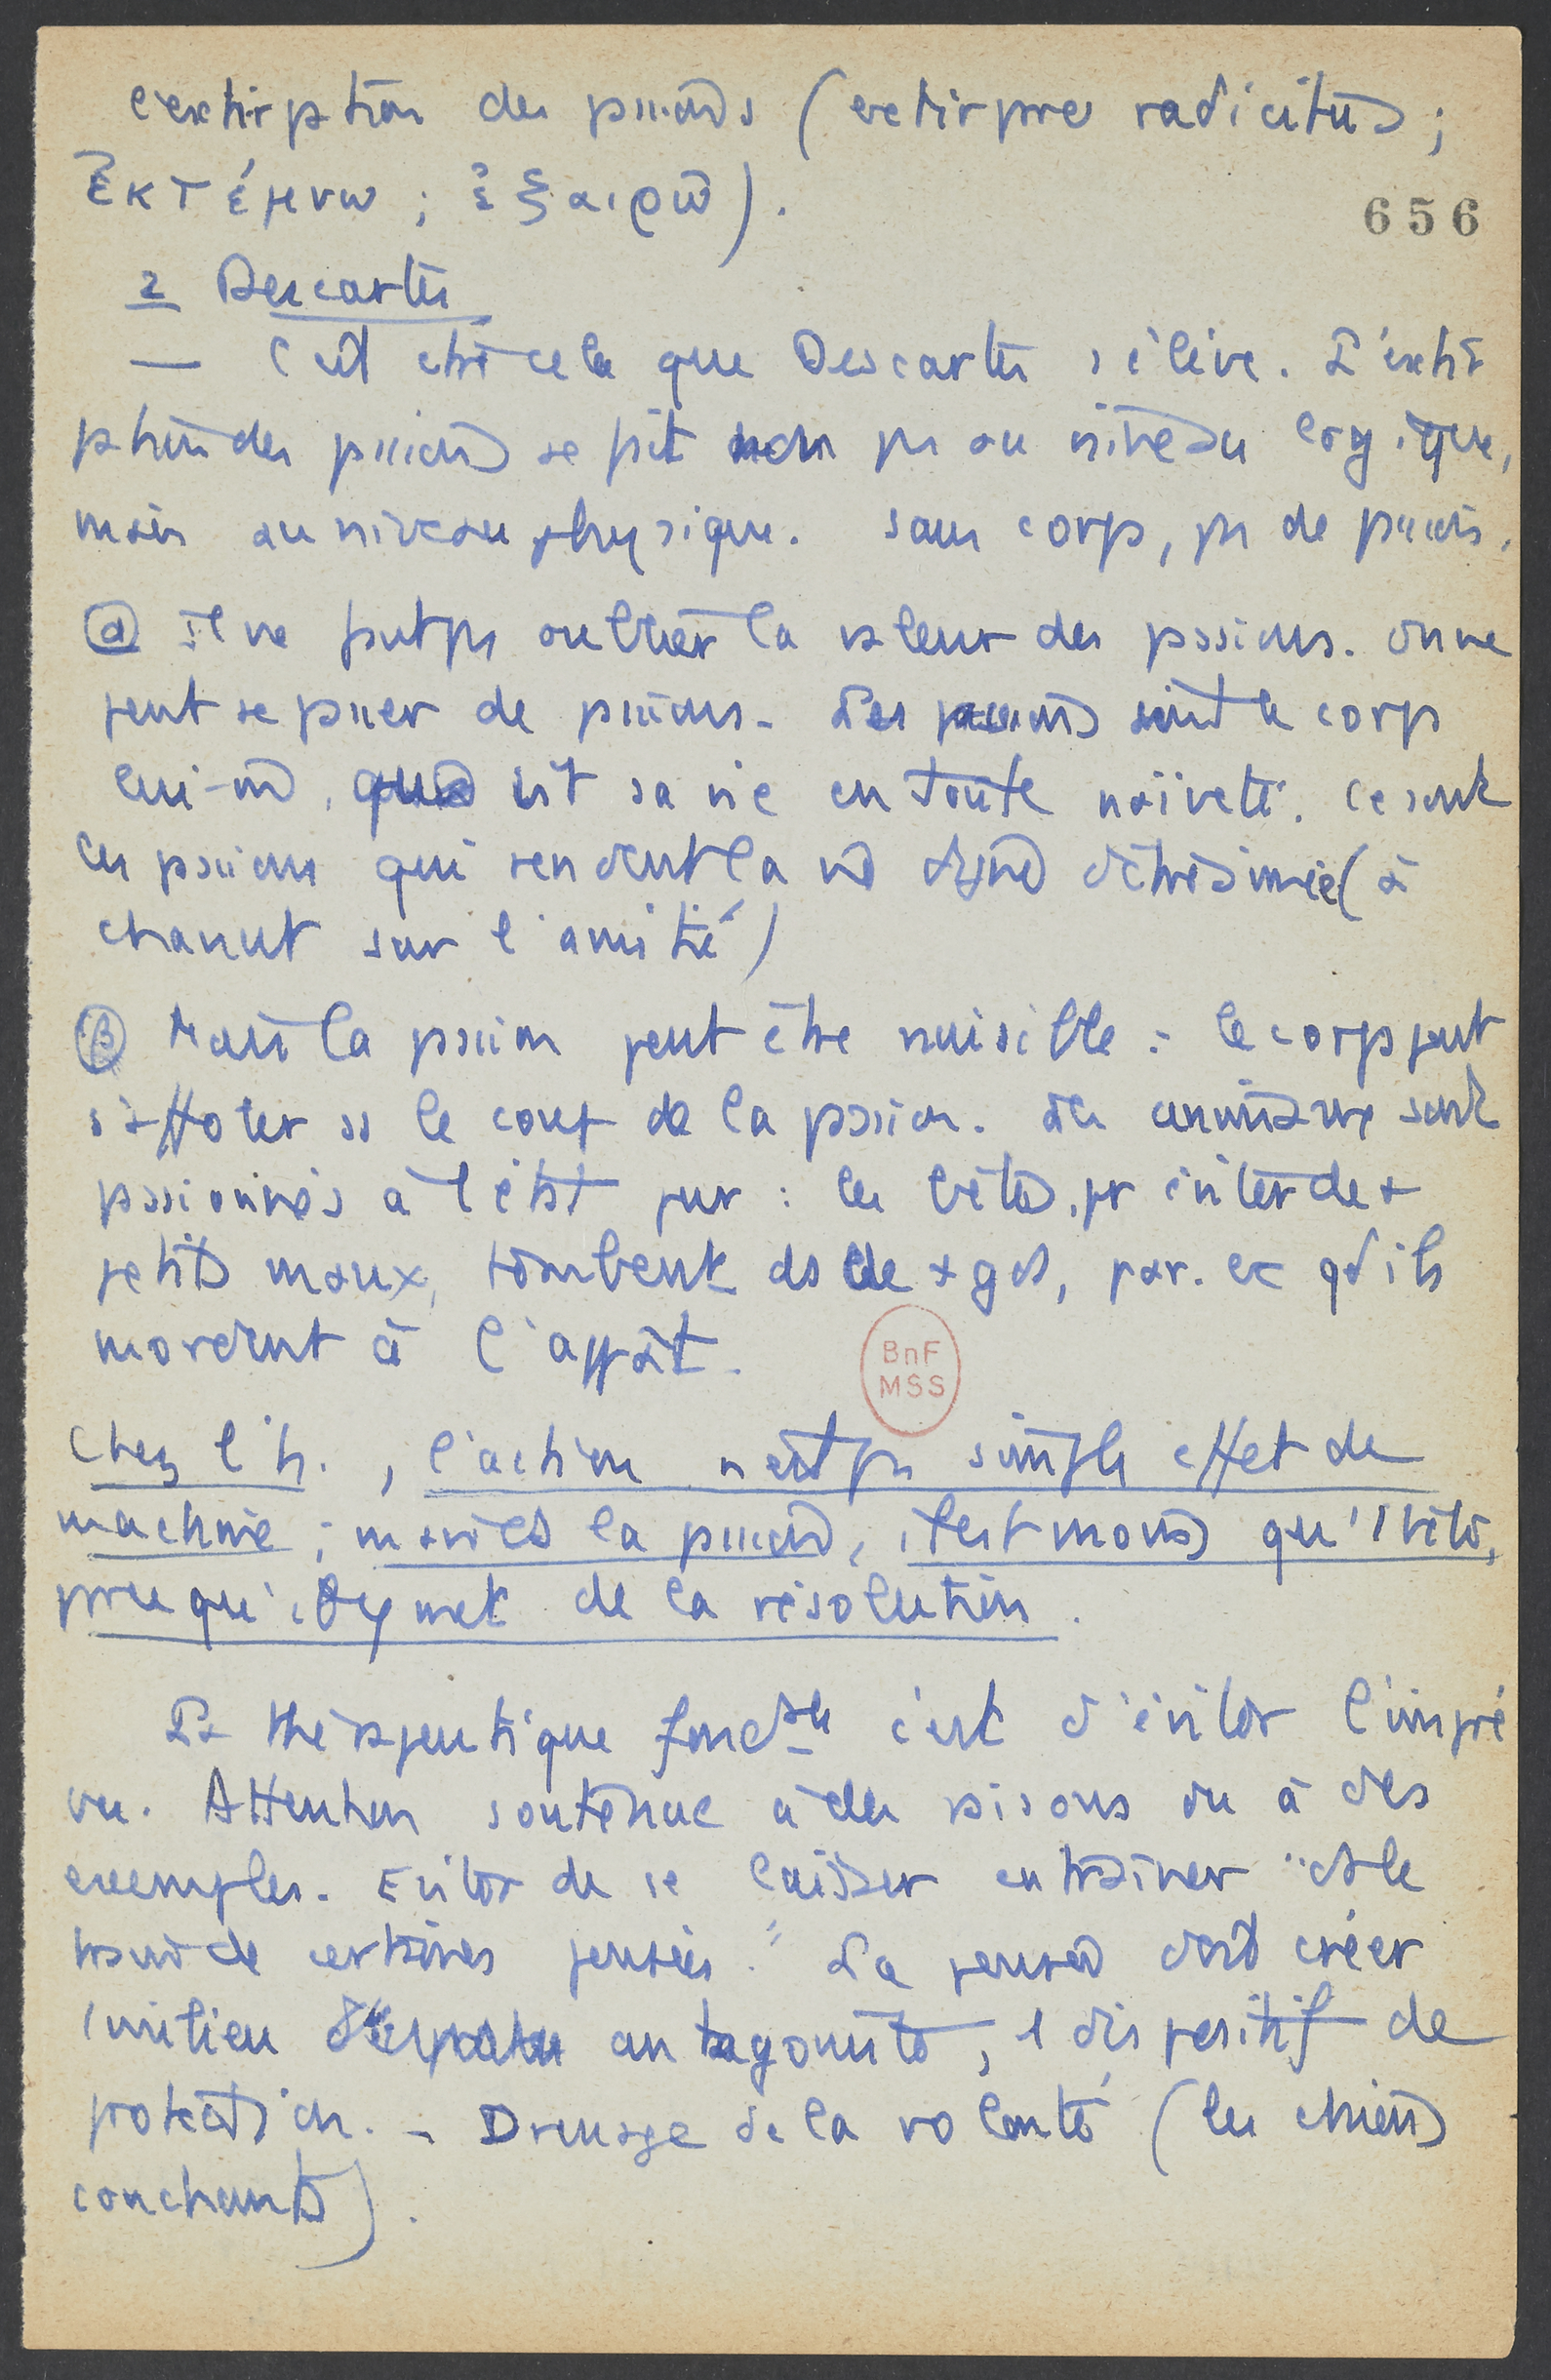 l'extirpation des passions (extirpare radicitus ;
ἐκτέμνω ; ἐξαιρῶ).
656
2 Descartes
— C'est ctre cela que Descartes s'élève. L'extir
pation des passions se fait non pas au niveau logique,
mais au niveau physique. Sans corps, pas de passions.
α il ne faut pas oublier la valeur des passions. On ne
peut se passer de passions. Les passions sont le corps
lui-même, qui vit sa vie en toute naïveté. Ce sont
les passions qui rendent la vie digne d'être aimée (à
Chanut sur l'amitié)
β Mais la passion peut être nuisible : le corps peut
s'affoler ss le coup de la passion. Les animaux sont
passionnés à l'état pur : les bêtes, pr éviter de +
petits maux, tombent ds de + gds, par. ex qd ils
mordent à l'appât.
BnF
MSS
Chez l'h., l'action n'est pas simple effet de
machine ; malgré la passion, il est moins qu'1 bête,
parce qu'il y met de la résolution.
La thérapeutique fondale c'est d'éviter l'impré
vu. Attention soutenue à des raisons ou à des
exemples. Eviter de se laisser entraîner "ds le
train de certaines pensées". La pensée doit créer
1 milieu antagoniste, 1 dispositif de
protection. - Dressage de la volonté (les chiens
couchants).